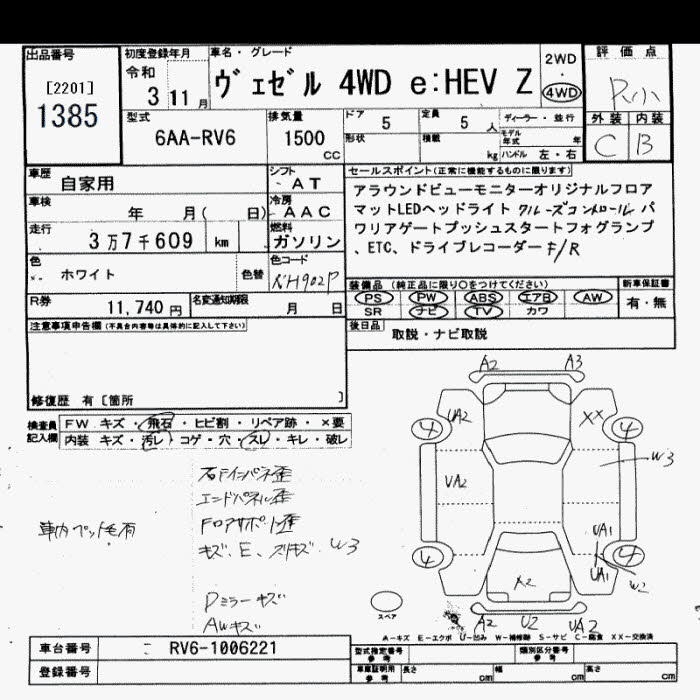 出品番号
[2201]
1385
初度登録年月
令和
3 11月
車名・グレード
ヴェゼル 4WD e:HEV Z
2WD
・
4WD
評価点
外装 内装
C B
型式
6AA-RV6
排気量
1500
cc
ドア 5
定員 5人
形状
積載 kg
ディーラー・並行
モデル年式 年
ハンドル 左・右
車歴
自家用
シフト
AT
車検
年 月( 日)
冷房
AAC
走行
3万7千609 km
燃料
ガソリン
色
ホワイト
色替
色コード
NH902P
R券
11,740円
名変通知期限
月 日
セールスポイント(正常に機能するものに限ります)
アラウンドビューモニターオリジナルフロア
マットLEDヘッドライト クルーズコントロール パ
ワリアゲートプッシュスタートフォグランプ
、ETC、ドライブレコーダー F/R
装備品 (純正品に限り〇をつけてください)
PS PW ABS エアB AW
SR ナビ TV カワ
新車保証書
有・無
後日品
取説・ナビ取説
注意事項申告欄(不具合内容等は具体的に記入して下さい)
修復歴 有〔箇所 〕
検査員記入欄
FW キズ・飛石・ヒビ割・リペア跡・×要
内装 キズ・汚レ・コゲ・穴・スレ・キレ・破レ
車内ペット毛有
エンドパネル歪
フロアサポート歪
キズ、E、スリキズ W3
Pミラーキズ
AWキズ
A2 A3
UA2 XX
4 4
W3
UA2
UA1
4 4
UA1
W2
X2
A2 U2 UA2
スペア
A-キズ E-エクボ U-凹み W-補修跡 S-サビ C-腐食 XX-交換済
車台番号
RV6-1006221
登録番号
型式指定番号
参考
類別区分番号
参考
車庫証明用
参考
長さ cm
幅 cm
高さ cm